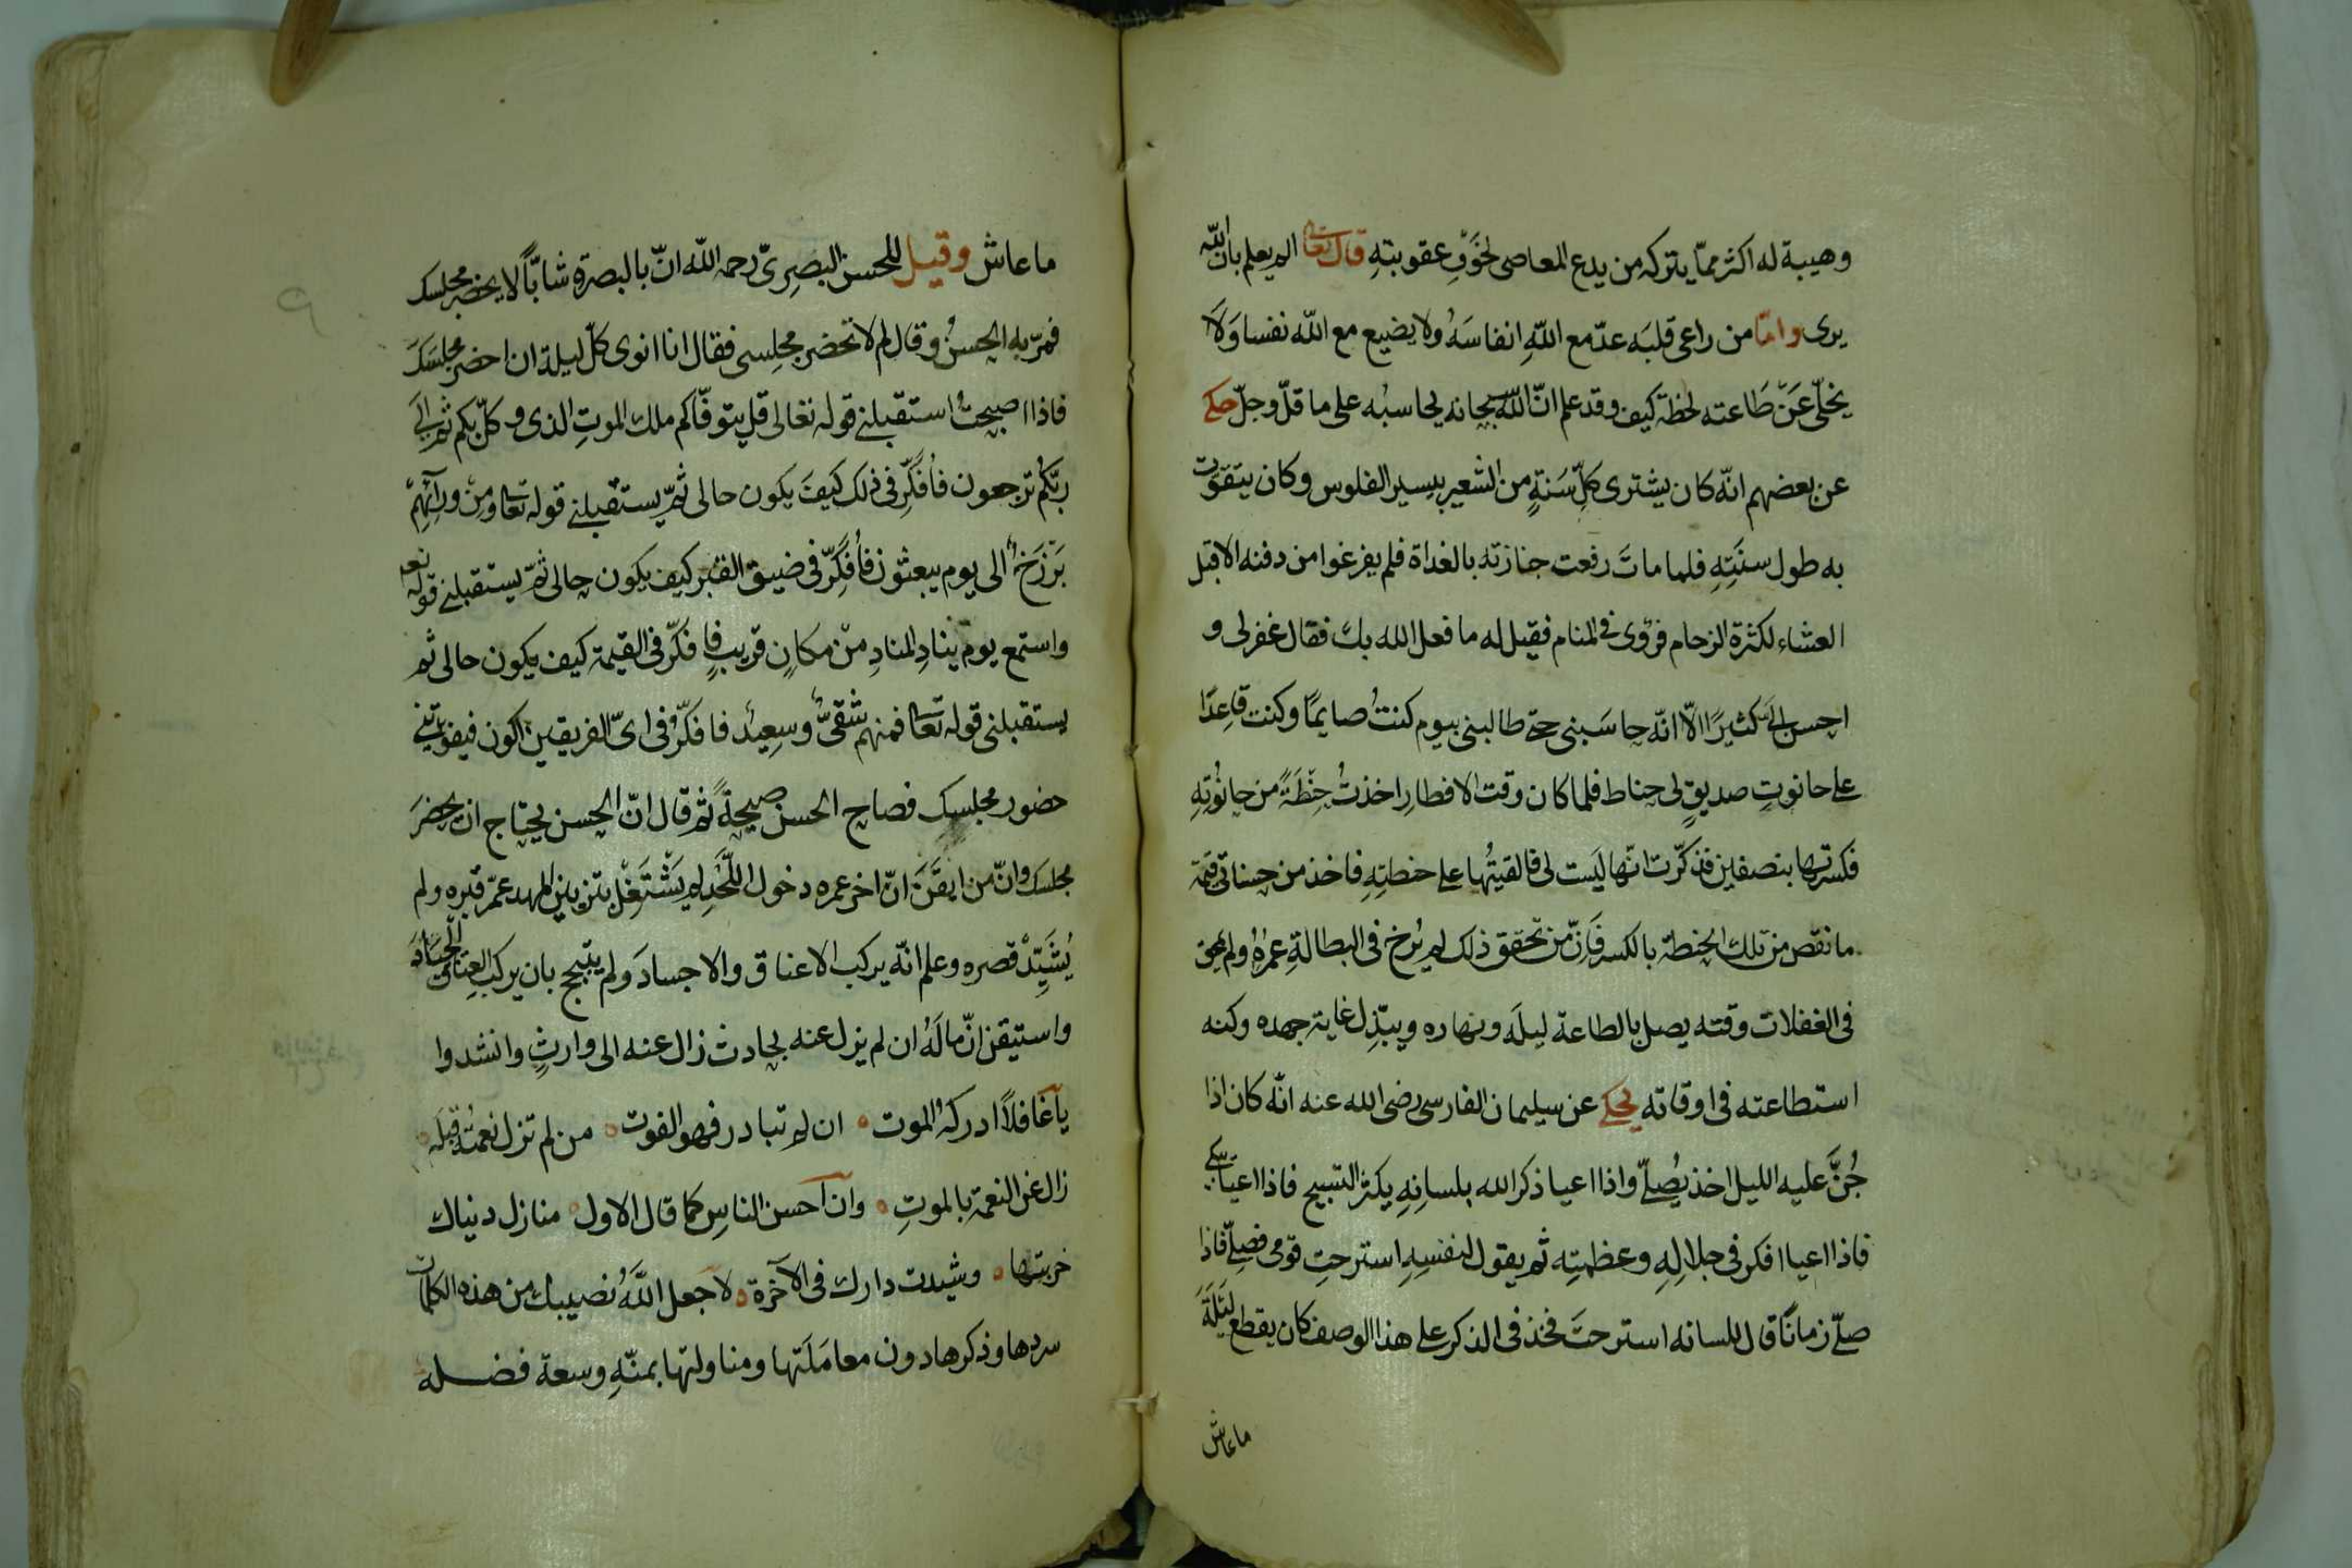 وهيبة له اكثر ممّا يتركه من يدع المعاصى لخَوْفِ عقوبتهِ قال تعالى الم يعلم بان الله
يرى وامّا من راعى قلبَه عدّ مع اللّهِ انفاسَهُ ولا يضيع مع اللّه نفسا وَلَا
يخلّى عَنْ طَاعته لحظة كيف وقد علم انّ اللّه سبحانه يحاسبُه على ما قلّ وجلّ حكى
عن بعضهم انّه كان يشترى كلّ سَنةٍ من الشعير بيسير الفلوس وكان يتقوّت
به طول سنَتِهِ فلما ماتَ رفعت جنازته بالغداة فلم يفرغوا من دفنه الا قبل
العشاء لكثرة الزحام فرؤى فى المنام فقيل له ما فعل الله بك فقال غفر لى و
احسن الىّ كثيرًا الّا انّه حاسَبنى حتى طالبنى بيوم كنتُ صايمًا وكنت قاعِدًا
على حانوتِ صديقٍ لى حناط فلما كان وقت الافطارِ اخذتُ حِنْطَةً من حانُوتِهِ
فكسرتها بنصفين فتذكّرت انّها ليَست لى فالقيتُها على حنطتِهِ فاخذ من حسناتى قيمة
ما نقص من تلك الحنطة بالكسر فَاِنّ من تحقق ذلك لم يُرخ فى البطالةِ عمرُهُ ولم يمحق
فى الغفلات وقته يصل بالطاعة ليلَه ونهاره ويبّذل غاية جهده وكنه
استطاعته فى اوقاته يحكى عن سليمان الفارسى رضى الله عنه انّه كان اذا
جُنَّ عليه الليل اخذ يُصلّى واذا اعيا ذكر الله بلسانِهِ يكثر التسبيح فاذا اعيا بكى
فاذا اعيا افكر فى جلالِهِ وعظمتِه ثم يقول لنفسِهِ استرحتِ قومى فصلّى فاذا
صلّى زمانًا قال للسانه استرحتَ فخذ فى الذكر على هذا الوصف كان يقطع ليَلَةَ
ما عاش
ما عاش وقيل للحسن البصرِىّ رحمه اللّه انّ بالبصرة شابّاً لا يحضر مجلسك
فمرّ به الحسنُ وقال لم لا تحضر مجلِسى فقال انا انوى كلّ ليلة ان احضر مجلسَكَ
فاذا اصبحتُ استقبلنى قوله تعالى قل يتوفّاكم ملك الموتِ الذى وكلّ بكم ثم الى
ربّكم ترجعون فأُفكّرِ فى ذلك كيفَ يكون حالى ثمّ يستقبلنى قوله تعالى ومِنْ ورآئِهِمْ
بَرْزَخٌ الى يوم يبعثون فأُفكِّرّ فى ضيق القبر كيف يكون حالى ثمّ يستقبلنى قوله تعه
واستمع يوم ينادِ المنادِ منْ مكانٍ قريبٍ فافكّر فى القيمة كيف يكون حالى ثم
يستقبلنى قوله تعالى فمنهم شقىٌّ وسعِيدٌ فافكّر فى اىّ الفريقين اكون فيفوّتنى
حضور مجلسِك فصاح الحسن صيحةً ثم قال انّ الحسن يحتاج ان يحضرَ
مجلسك وانّ من ايقَنَ انّ اخر عمره دخول اللَّحْدِ لم يَشْتَغلْ بتزيين المهد عمّر قبره ولم
يُشَيِّدْ قصره وعلم انّه يركب الاعناق والاجسادَ ولم يتبجح بان يركب العِتاق الجِيَادَ
واستيقن انّ مالَهُ ان لم يزل عنه بحادث زال عنه الى وارثٍ وانشدوا
يآغافلاً ادركهُ الموت ان لم تبادر فهو الفوت من لم تزل نعمتُه قبلَه
زال عن النعمة بالموتِ وان آحسن الناسِ كما قال الاول منازل دنياك
خربتها وشيدت دارك فى الآخرة لا جعل اللّهُ نصيبك من هذه الكلمات
سردها وذكرها دون معامَلَتها ومناولتها بمنّهِ وسعة فضله